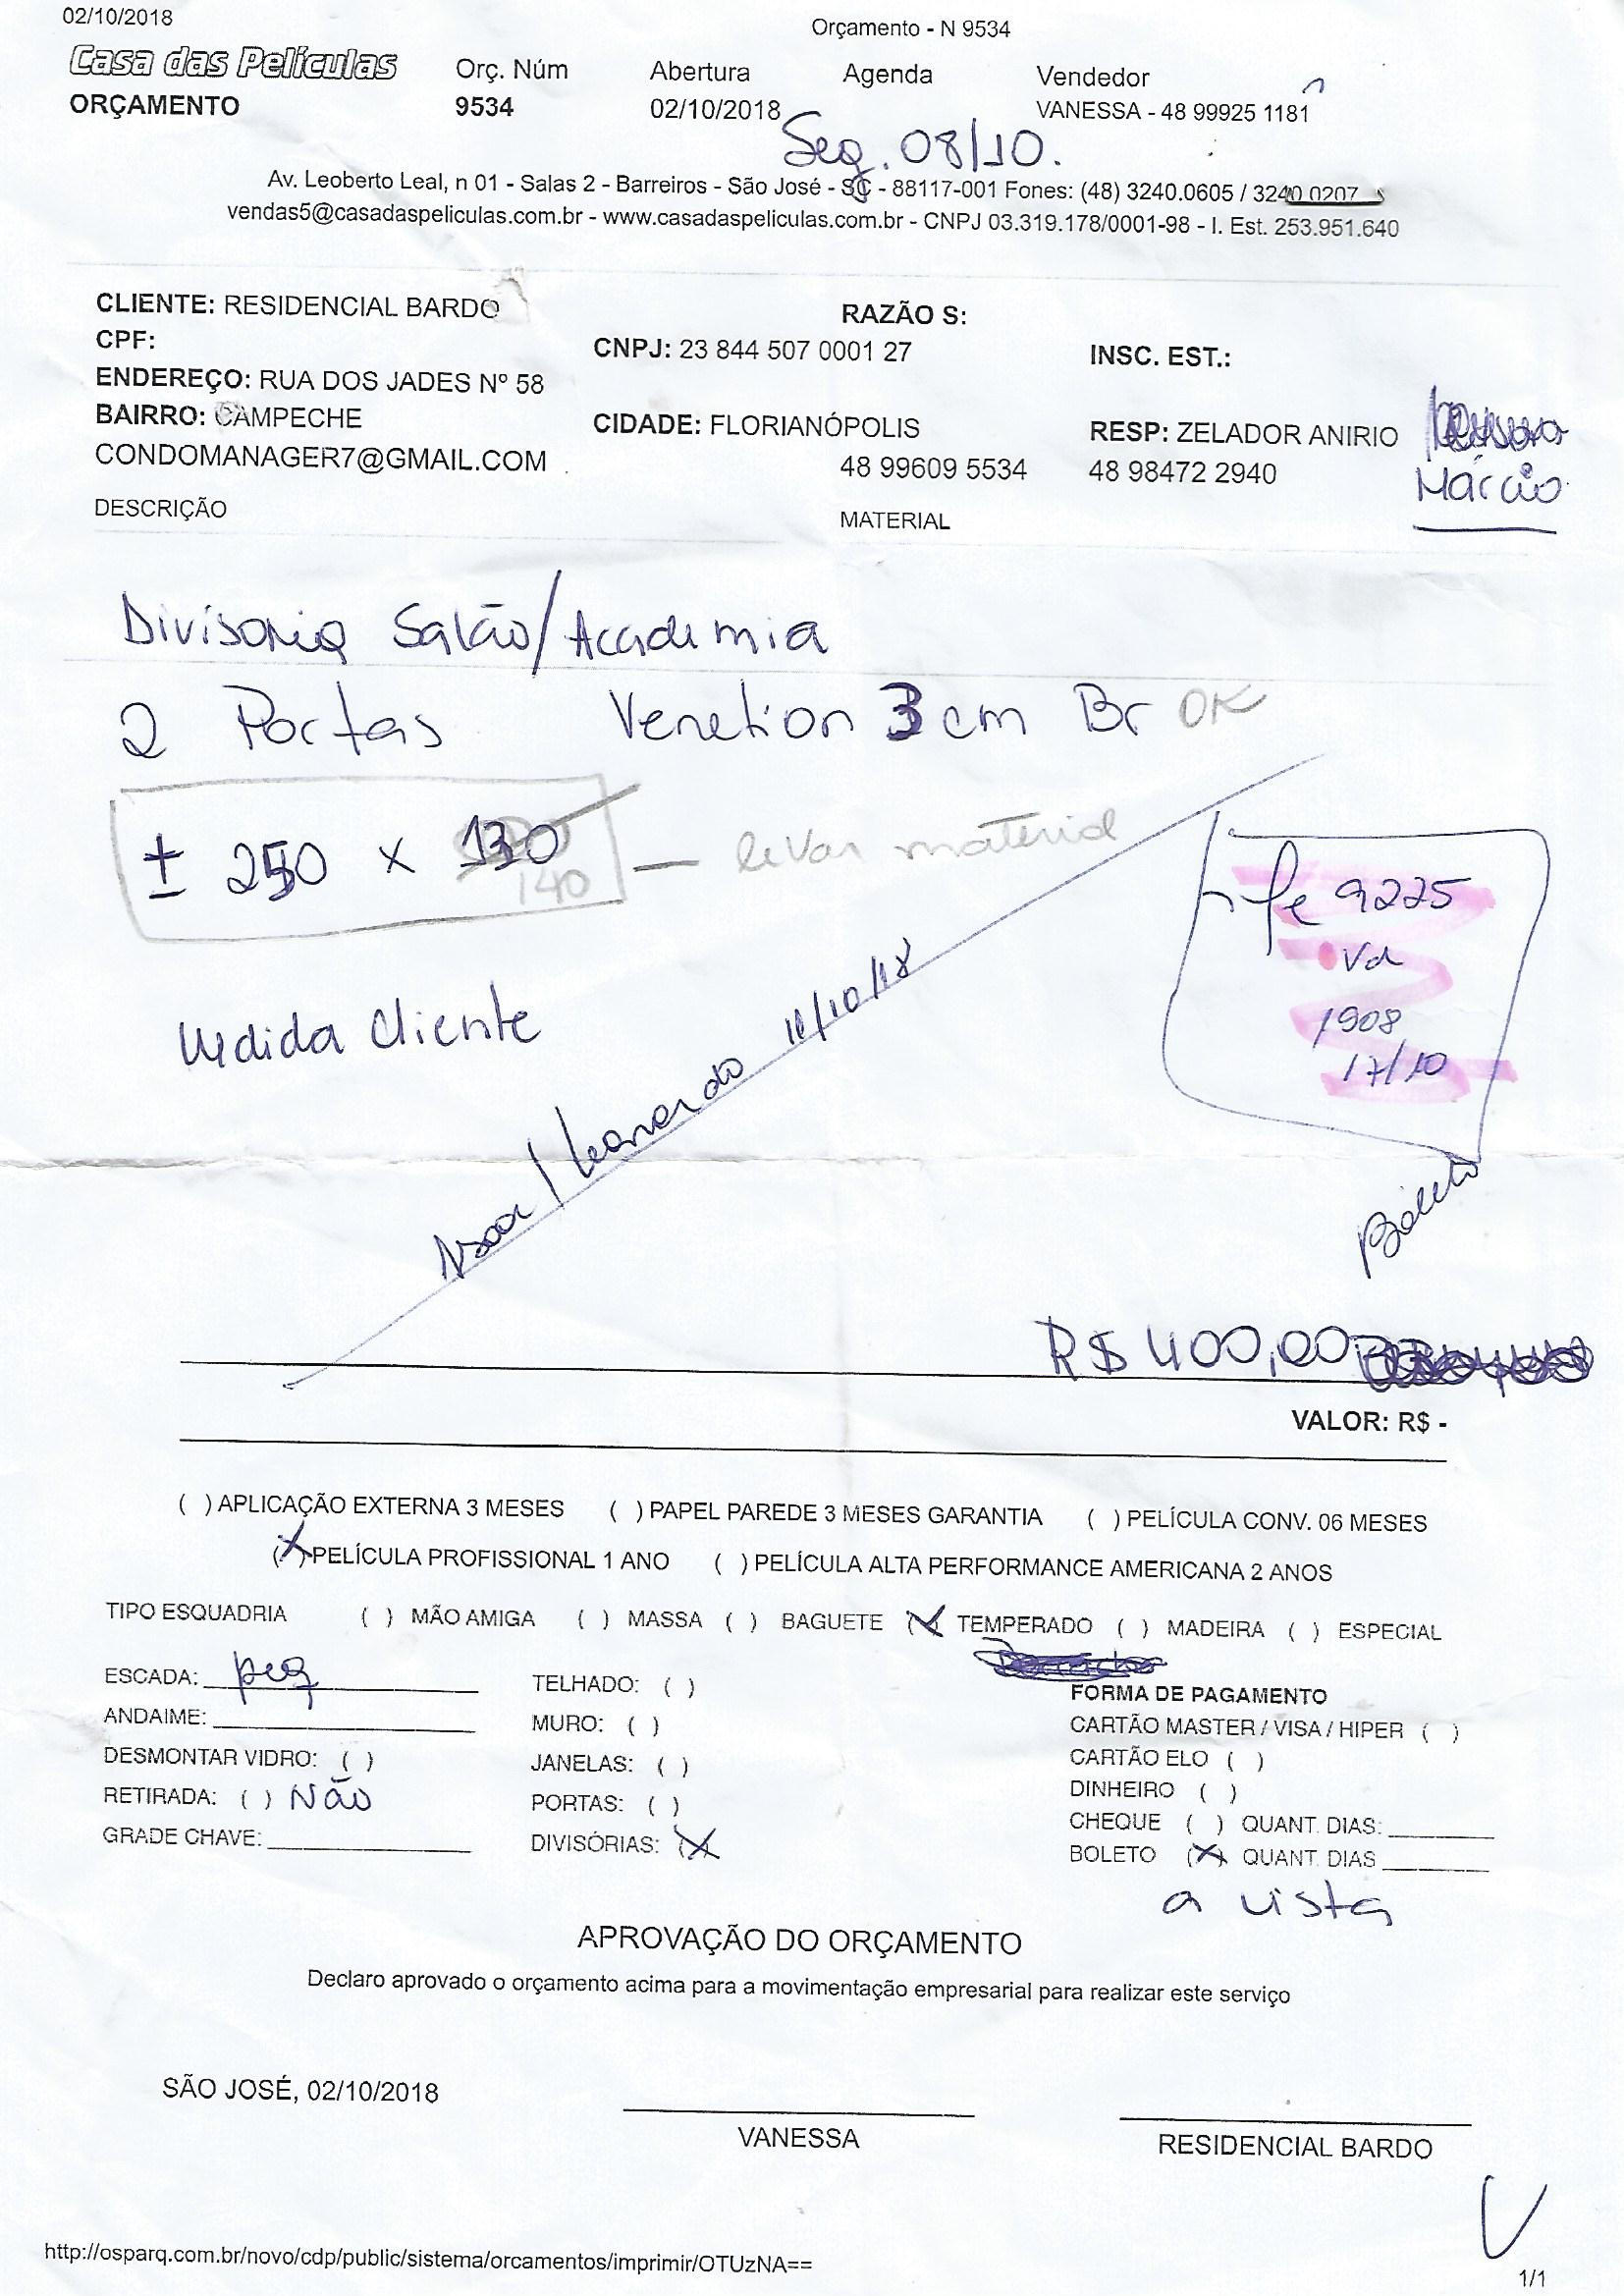 02/10/2018
Orçamento - N 9534
Casa das Películas Orç. Núm Abertura Agenda Vendedor
ORÇAMENTO 9534 02/10/2018 VANESSA - 48 99925 1181
Seg. 08/10.
Av. Leoberto Leal, n 01 - Salas 2 - Barreiros - São José - SC - 88117-001 Fones: (48) 3240.0605 / 3240.0207
vendas5@casadaspeliculas.com.br - www.casadaspeliculas.com.br - CNPJ 03.319.178/0001-98 - I. Est. 253.951.640
CLIENTE: RESIDENCIAL BARDO RAZÃO S:
CPF: CNPJ: 23 844 507 0001 27 INSC. EST.:
ENDEREÇO: RUA DOS JADES Nº 58
BAIRRO: CAMPECHE CIDADE: FLORIANÓPOLIS RESP: ZELADOR ANIRIO
CONDOMANAGER7@GMAIL.COM 48 99609 5534 48 98472 2940 Márcio
DESCRIÇÃO MATERIAL
Divisoria Salão/Academia
2 Portas Venetion 3 cm Br OK
± 250 x 130 — levar material
140
nfe 9225
Vd
1908
17/10
Medida Cliente
Leonardo 11/10/18
Boleto
R$ 400,00
VALOR: R$ -
( ) APLICAÇÃO EXTERNA 3 MESES ( ) PAPEL PAREDE 3 MESES GARANTIA ( ) PELÍCULA CONV. 06 MESES
(X) PELÍCULA PROFISSIONAL 1 ANO ( ) PELÍCULA ALTA PERFORMANCE AMERICANA 2 ANOS
TIPO ESQUADRIA ( ) MÃO AMIGA ( ) MASSA ( ) BAGUETE (X) TEMPERADO ( ) MADEIRA ( ) ESPECIAL
ESCADA: peq TELHADO: ( ) FORMA DE PAGAMENTO
ANDAIME: MURO: ( ) CARTÃO MASTER / VISA / HIPER ( )
DESMONTAR VIDRO: ( ) JANELAS: ( ) CARTÃO ELO ( )
RETIRADA: ( ) Não PORTAS: ( ) DINHEIRO ( )
GRADE CHAVE: DIVISÓRIAS: (X) CHEQUE ( ) QUANT. DIAS:
BOLETO (X) QUANT. DIAS
a vista
APROVAÇÃO DO ORÇAMENTO
Declaro aprovado o orçamento acima para a movimentação empresarial para realizar este serviço
SÃO JOSÉ, 02/10/2018
VANESSA RESIDENCIAL BARDO
http://osparq.com.br/novo/cdp/public/sistema/orcamentos/imprimir/OTUzNA==
1/1